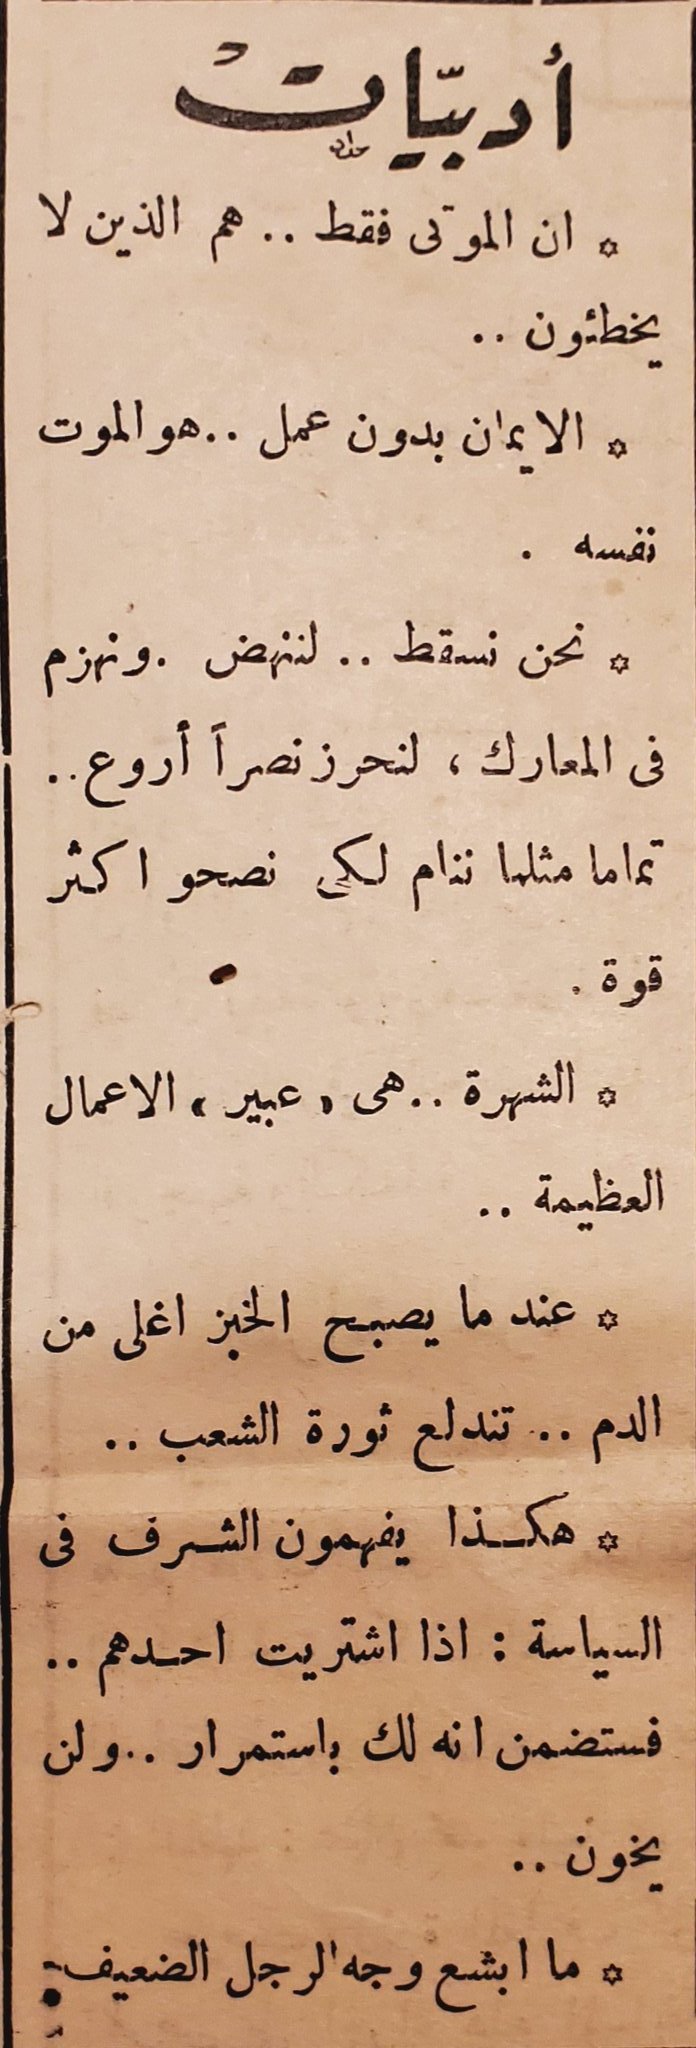 أدبيّات
حداد
✡ ان الموتى فقط .. هم الذين لا
يخطئون ..
✡ الايمان بدون عمل .. هو الموت
نفسه .
✡ نحن نسقط .. لننهض . ونهزم
فى المعارك ، لنحرز نصراً أروع ..
تماما مثلما ننام لكى نصحو اكثر
قوة .
✡ الشهرة .. هى « عبير » الاعمال
العظيمة ..
✡ عند ما يصبح الخبز اغلى من
الدم .. تندلع ثورة الشعب ..
✡ هكـذا يفهمون الشـرف فى
السياسة : اذا اشتريت احـدهم ..
فستضمن انه لك باستمرار .. ولن
يخون ..
✡ ما ابشع وجه الرجل الضعيف